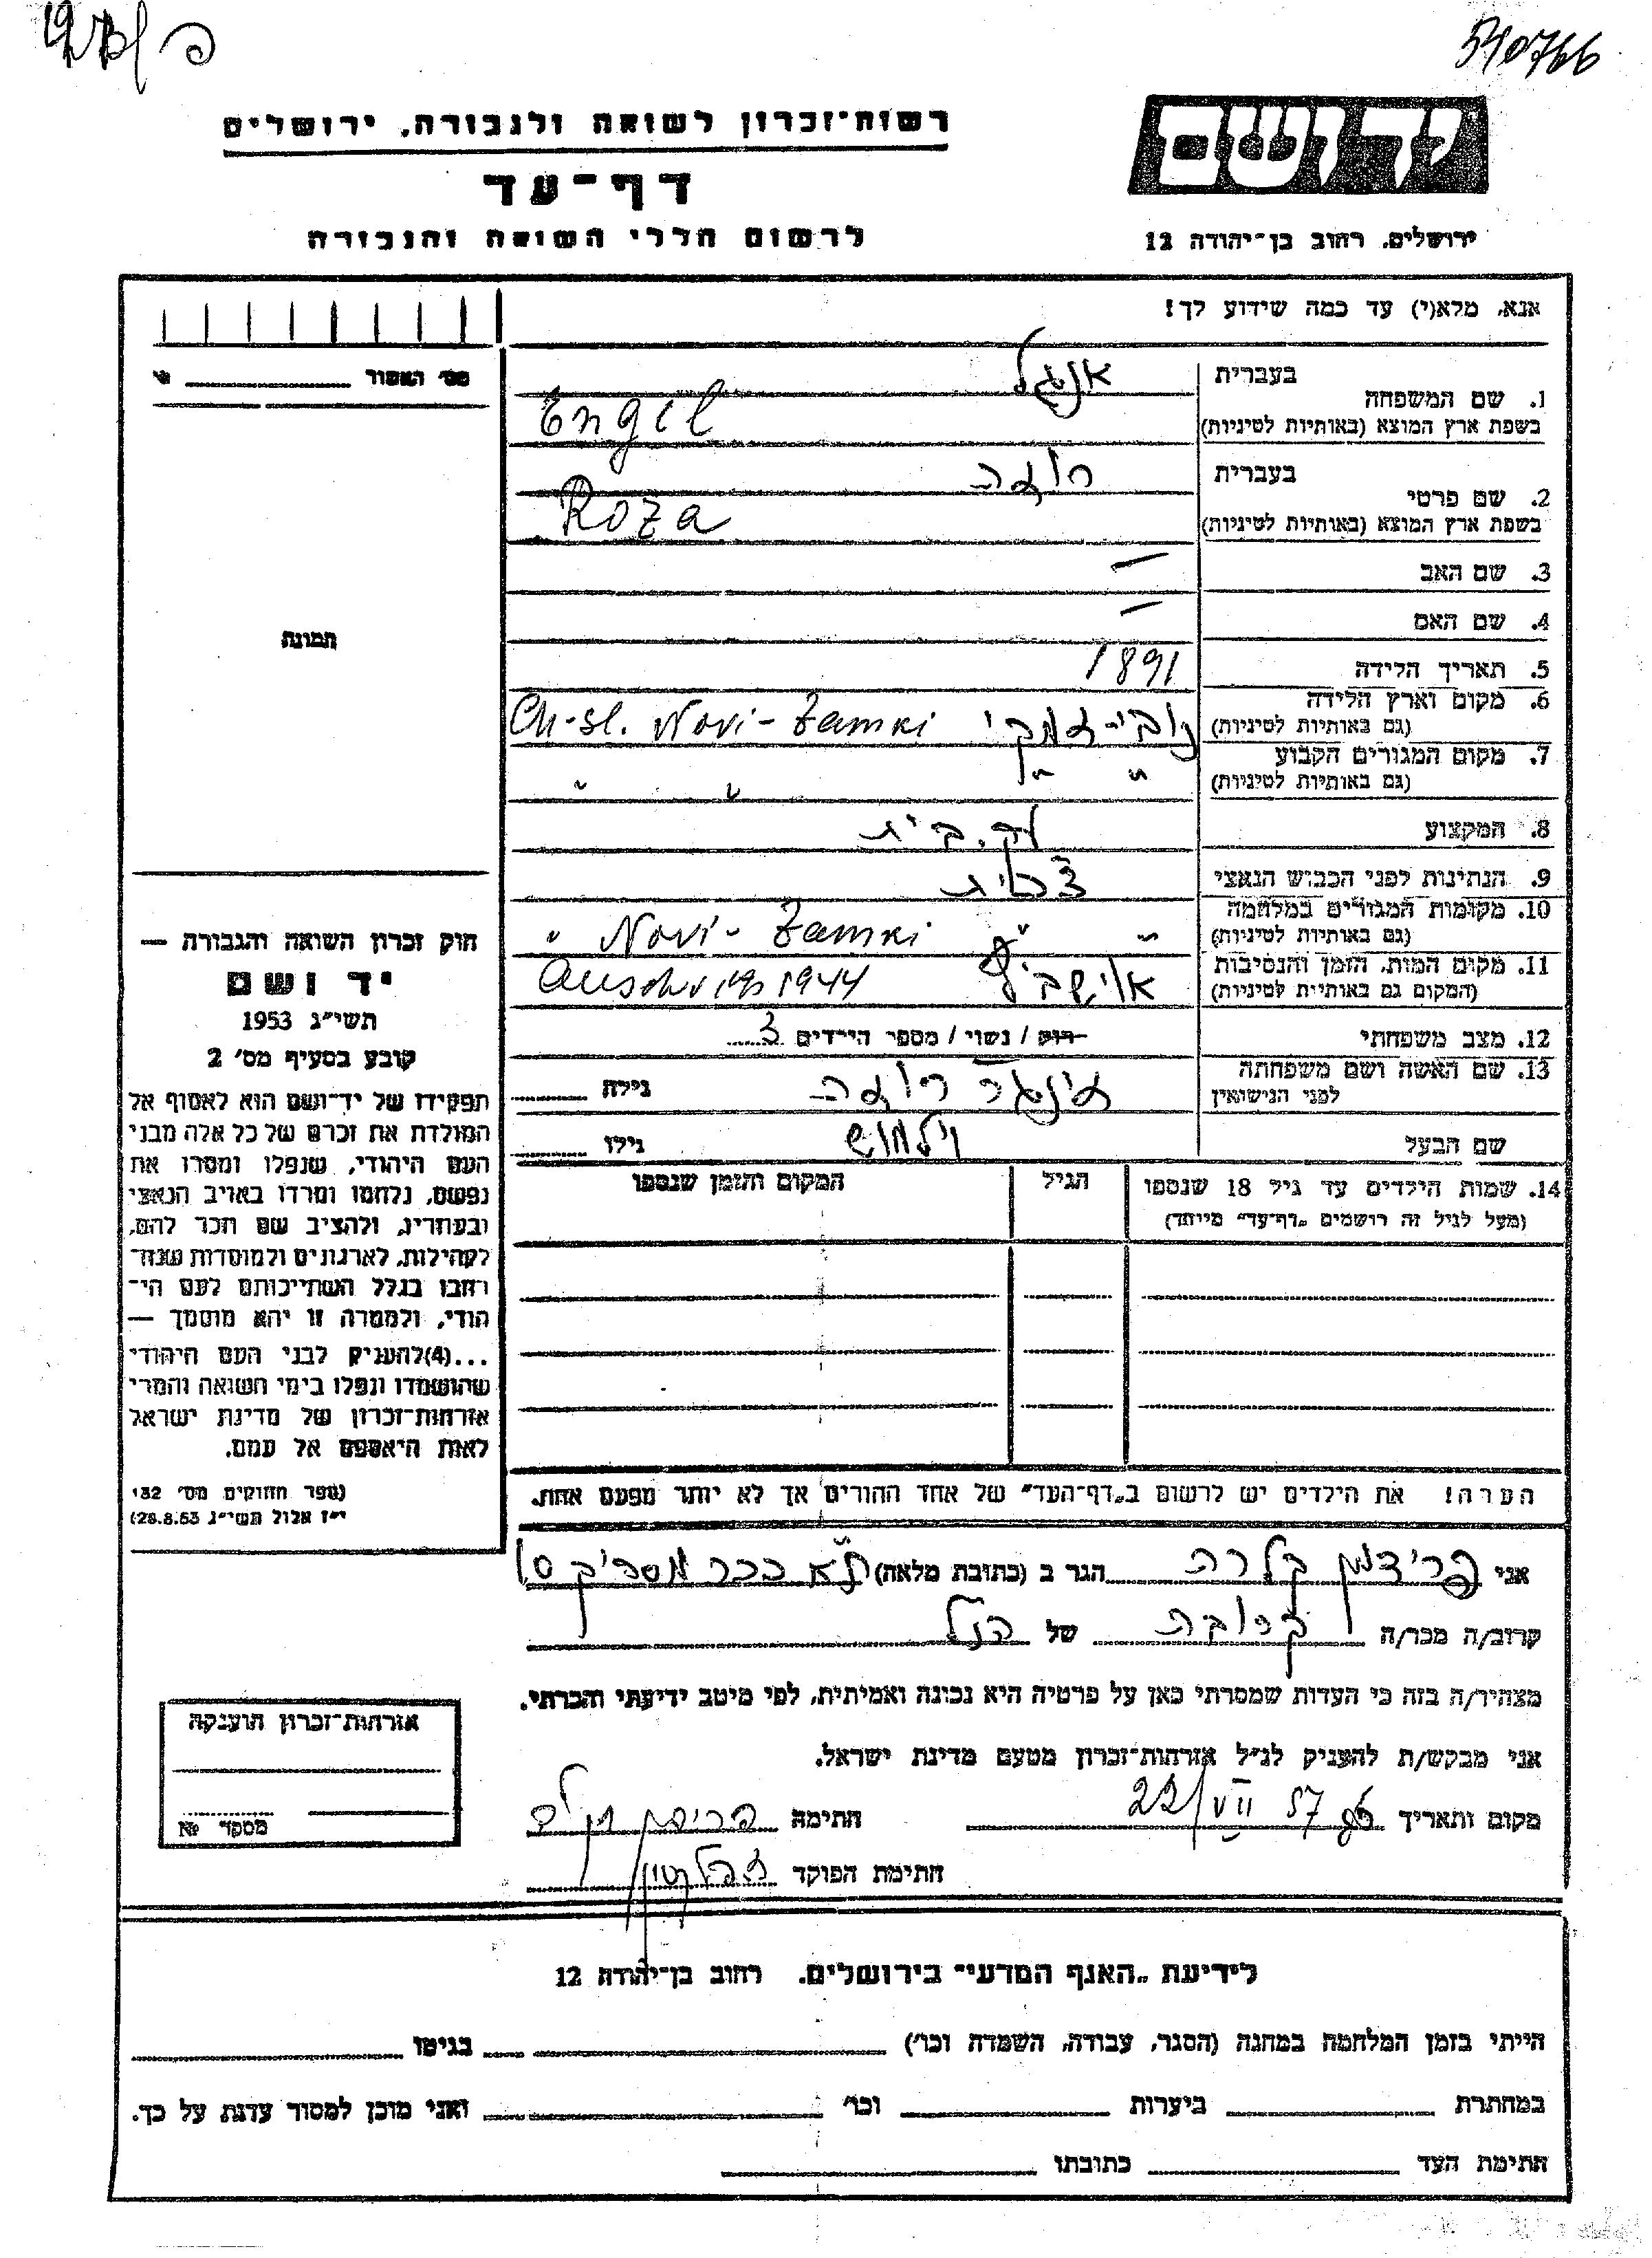 540766
ידושם
ירושלים, רחוב בן־יהודה 12
רשות־זכרון לשואה ולגבורה, ירושלים
דף־עד
לרשום חללי השואה והגבורה
אנא, מלא(י) עד כמה שידוע לך!
בעברית אנגל
1. שם המשפחה
בשפת ארץ המוצא (באותיות לטיניות) Engel
בעברית רוזה
2. שם פרטי
בשפת ארץ המוצא (באותיות לטיניות) Roza
3. שם האב —
4. שם האם —
5. תאריך הלידה 1891
6. מקום וארץ הלידה
(גם באותיות לטיניות) נובי-זמקי Ch-sl. Novi-Zamki
7. מקום המגורים הקבוע
(גם באותיות לטיניות) " " " "
8. המקצוע עק. בית
9. הנתינות לפני הכבוש הנאצי צ'כית
10. מקומות המגורים במלחמה
(גם באותיות לטיניות) " " Novi-Zamki "
11. מקום המות, הזמן והנסיבות
(המקום גם באותיות לטיניות) אושביץ 1944
12. מצב משפחתי רווק / נשוי / מספר הילדים 3
13. שם האשה ושם משפחתה
לפני הנישואין אנגל רוזה גילה
שם הבעל וילמוש גילו
14. שמות הילדים עד גיל 18 שנספו
(מעל לגיל זה רושמים „דף־עד" מייוחד)
הגיל
המקום והזמן שנספו
הערה! את הילדים יש לרשום ב„דף־העד" של אחד ההורים אך לא יותר מפעם אחת.
מס' האשור
תמונה
חוק זכרון השואה והגבורה —
יד ושם
תשי"ג 1953
קובע בסעיף מס' 2
תפקידו של יד־ושם הוא לאסוף אל
המולדת את זכרם של כל אלה מבני
העם היהודי, שנפלו ומסרו את
נפשם, נלחמו ומרדו באויב הנאצי
ובעוזריו, ולהציב שם וזכר להם,
לקהילות, לארגונים ולמוסדות שנח־
רבו בגלל השתייכותם לעם הי־
הודי, ולמטרה זו יהא מוסמך —
...(4)להעניק לבני העם היהודי
שהושמדו ונפלו בימי השואה והמרי
אזרחות־זכרון של מדינת ישראל
לאות היאספם אל עמם.
(ספר החוקים מס' 132
י"ז אלול תשי"ג 28.8.53)
אני פרידמן קלרה הגר ב (כתובת מלאה) ת"א ככר מסריק 10
קרוב/ה מכר/ה קרובת של הנ"ל
מצהיר/ה בזה כי העדות שמסרתי כאן על פרטיה היא נכונה ואמיתית, לפי מיטב ידיעתי והכרתי.
אני מבקש/ת להעניק לנ"ל אזרחות־זכרון מטעם מדינת ישראל.
מקום ותאריך 22/VII 57 חתימה
חתימת הפוקד
אזרחות־זכרון הוענקה
מספר №
לידיעת „האגף המדעי" בירושלים. רחוב בן־יהודה 12
הייתי בזמן המלחמה במחנה (הסגר, עבודה, השמדה וכו') בגיטו
במחתרת ביערות וכו' ואני מוכן למסור עדות על כך.
חתימת העד כתובתו